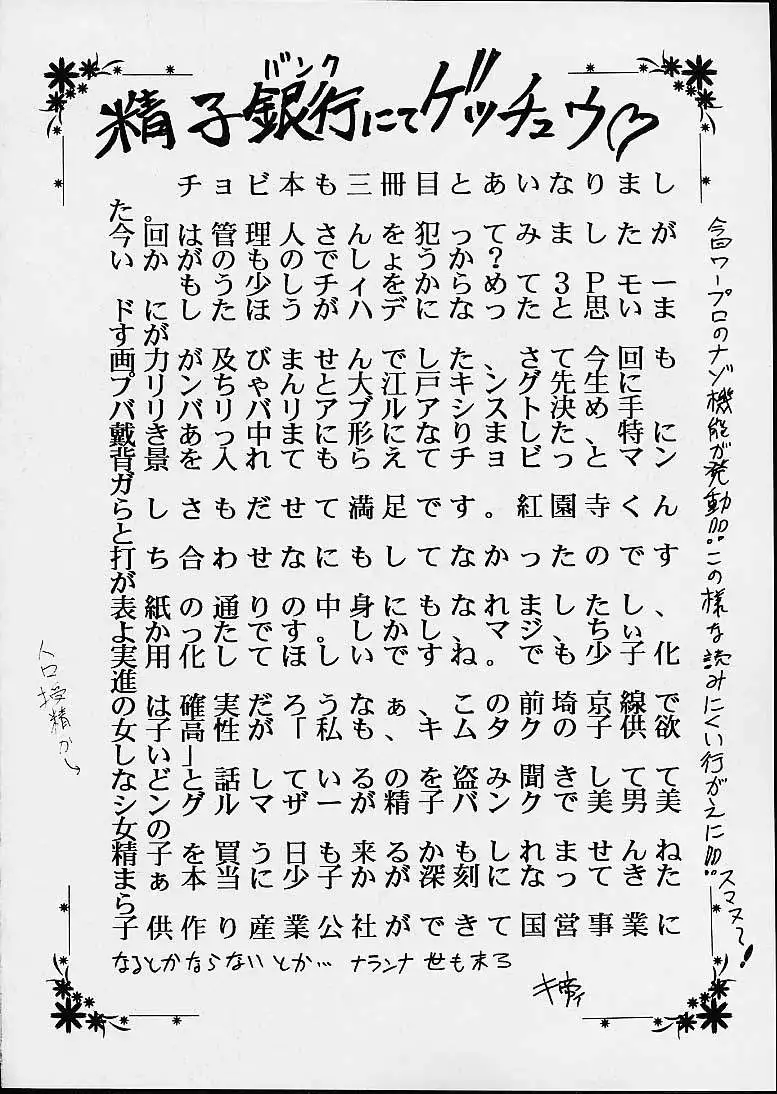 精子銀行にてゲッチュウ♡
バンク
チョビ本も三冊目とあいなりまし
た。
今回は管理人さんを犯ってみましたが
いかがのものでしょうか?
もう少しチィをからめて3Pモー
ドにしたほうがハデになったと思いま
すが
画力が及びませんでした、さて今回も
プリンちゃんと大江戸キング先生に手
バリバリリアブルアシスト決め、特に
戴きあっ中まに形になりました、マン
背景を入れてもらえてチョビっと
ガらしさもだせて満足です。紅園寺くん
と打ち合わせなにもしてなかったのです
が
表紙の通りの中身にもなれましたし、
よかったです。しかし、マジでちぃ
実用化してほしいですね。も少子化
進
のは確実だろうなぁ、この前埼京線で
女子高性が「私も、キムタクの子供欲
しい」と話しているのを盗み聞きして
などと
シングルマザーが精子バンクで美男美
女の
精子を買う日も来るかもしれませんね
まぁ本当に少子かが深刻になってきた
ら
子供作り産業公社ができて国営事業に
なるとかならないとか… ナランナ 世も末ろ
今回ワープロのナゾ機能が発動!!!この様な読みにくい行がえに!!!スマヌ〜!
人口授精か〜